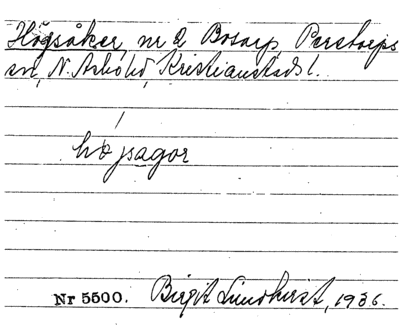 Högsåker, nr 2 Bosarp, Perstorps
sn, N. Åsbo hd, Kristianstads l.
hø jsagor
Nr 5500. Birgit Lindkvist, 1936.